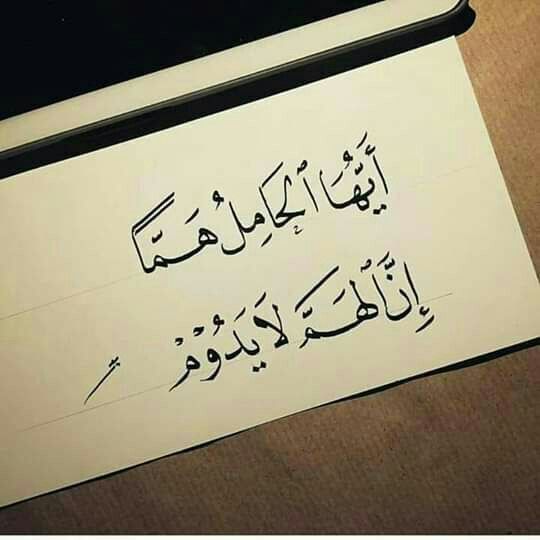 أَيُّهَا ٱلْحَامِلُ هَمًّا
إِنَّ ٱلْهَمَّ لَا يَدُوْمْ